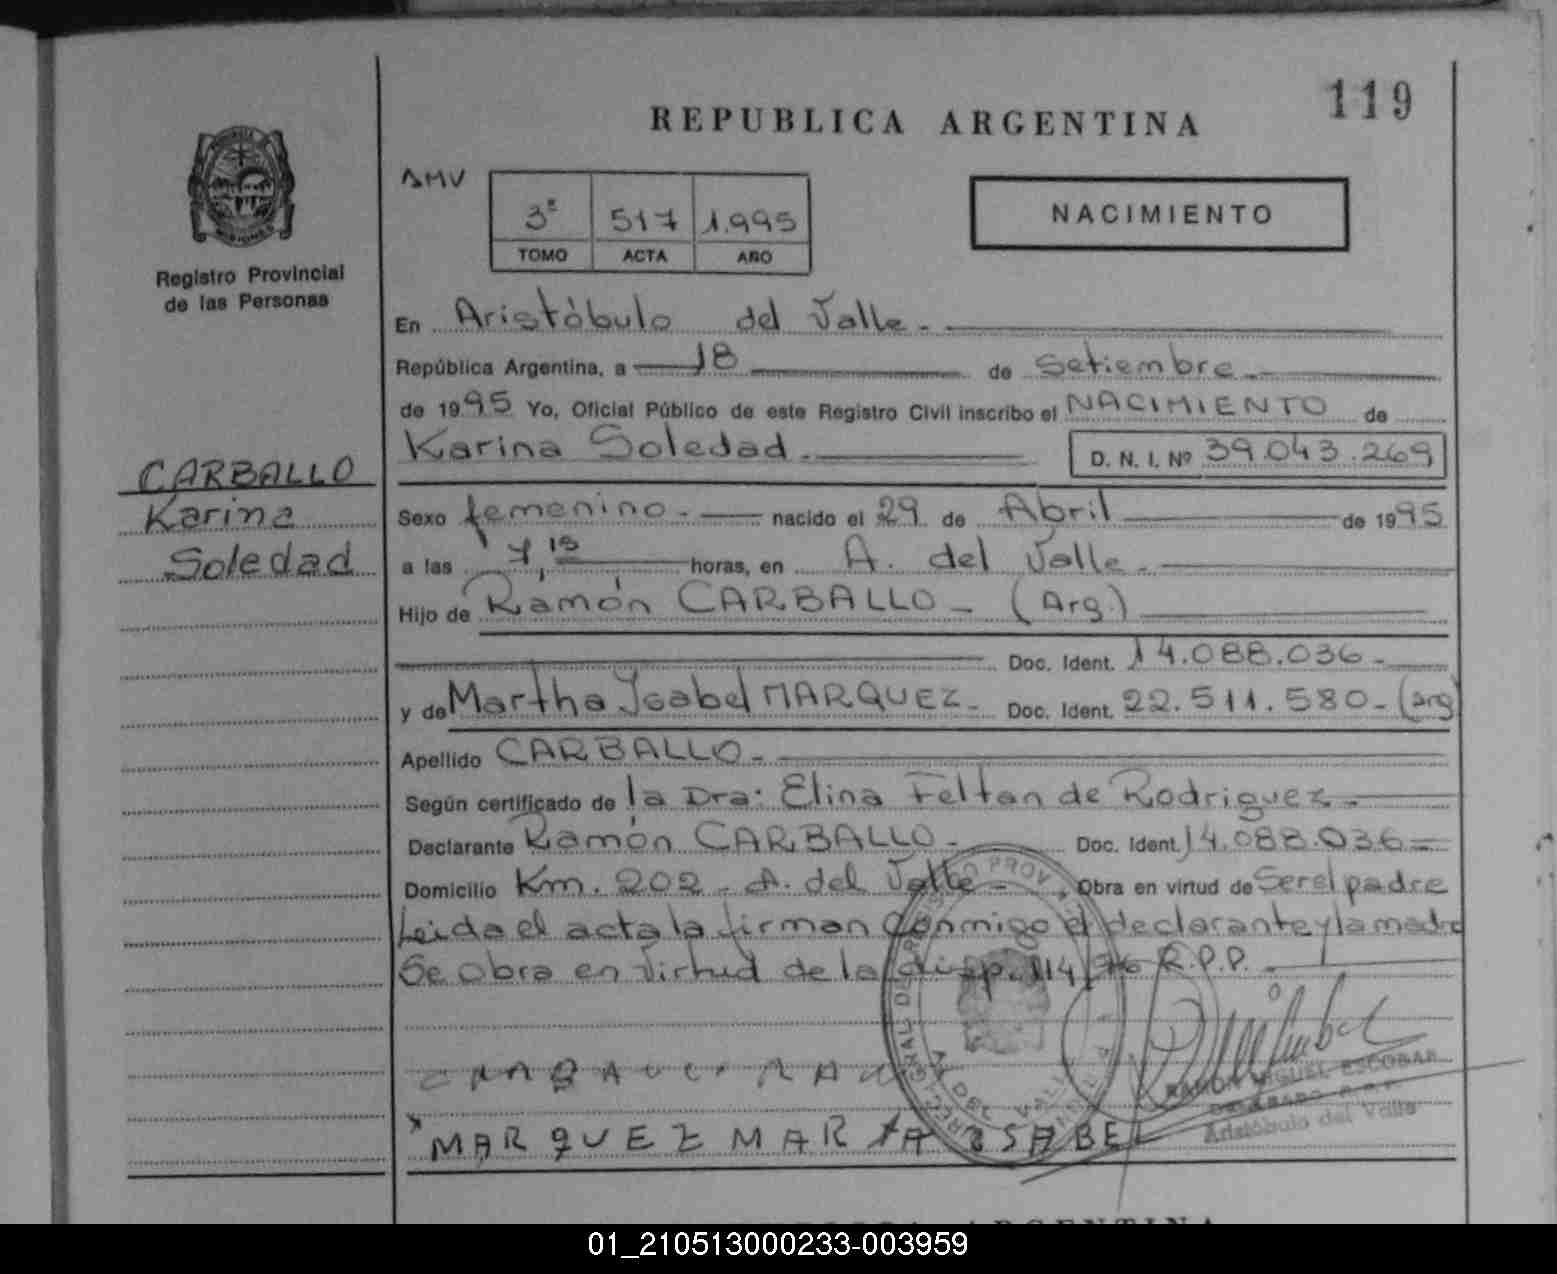 119
REPUBLICA ARGENTINA
MISIONES
Registro Provincial
de las Personas
3º 517 1.995
TOMO ACTA AÑO
NACIMIENTO
En Aristóbulo del Valle.
República Argentina, a 18 de Setiembre
de 1995 Yo, Oficial Público de este Registro Civil inscribo el NACIMIENTO de
Karina Soledad. D. N. I. Nº 39.043.269
CARBALLO
Karina
Soledad
Sexo femenino. nacido el 29 de Abril de 1995
a las horas, en A. del Valle.
Hijo de Ramón CARBALLO - (Arg.)
Doc. Ident. 14.088.036.
y de Martha Ysabel MARQUEZ. Doc. Ident. 22.511.580. (arg
Apellido CARBALLO.
Según certificado de la Dra. Elina Feltan de Rodriguez.
Declarante Ramón CARBALLO. Doc. Ident. 14.088.036
Domicilio Km. 202. A. del Valle Obra en virtud de Ser el padre
Leida el acta la firman Conmigo el declarante y la madre
Se Obra en Virtud de la disp. 114/96 R.P.P.
RAMON MIGUEL ESCOBAR
Aristóbulo del Valle
MARQUEZ MARTA ISABEL
ARGENTINA
01_210513000233-003959